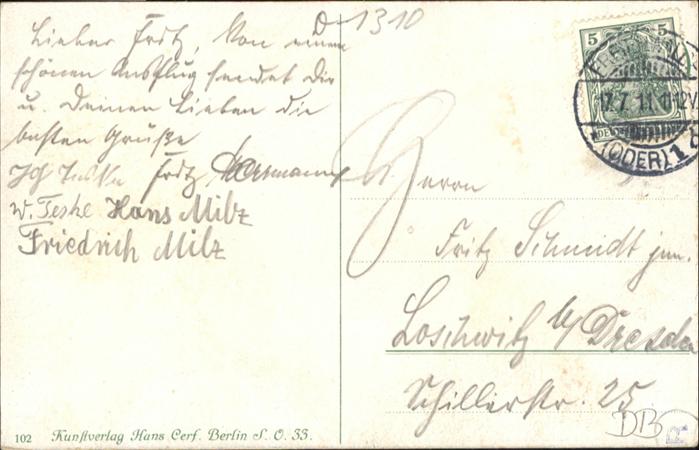 D-1310
Lieber Fritz, Von einem
schönen Ausflug sendet Dir
u. Deinen Lieben die
besten Grüße
Fritz Hermann
W. Teske Hans Milz
Friedrich Milz
5 5
17.7.11.
(ODER) 1
Herrn
Fritz Schmidt jun.
Loschwitz b/ Dresden
Schillerstr. 25
DB
102 Kunstverlag Hans Cerf. Berlin S. O. 33.